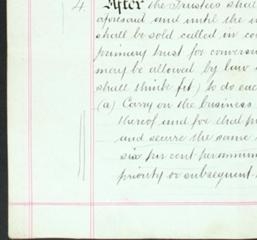 4. After the Trustees shal
aforesaid and until the
shall be sold called in co
primary trust for convers
may be allowed by law
shall think fit) to do eac
(a) Carry on the business
thereof and for that p
and secure the same
six per cent per annum
priority or subsequent